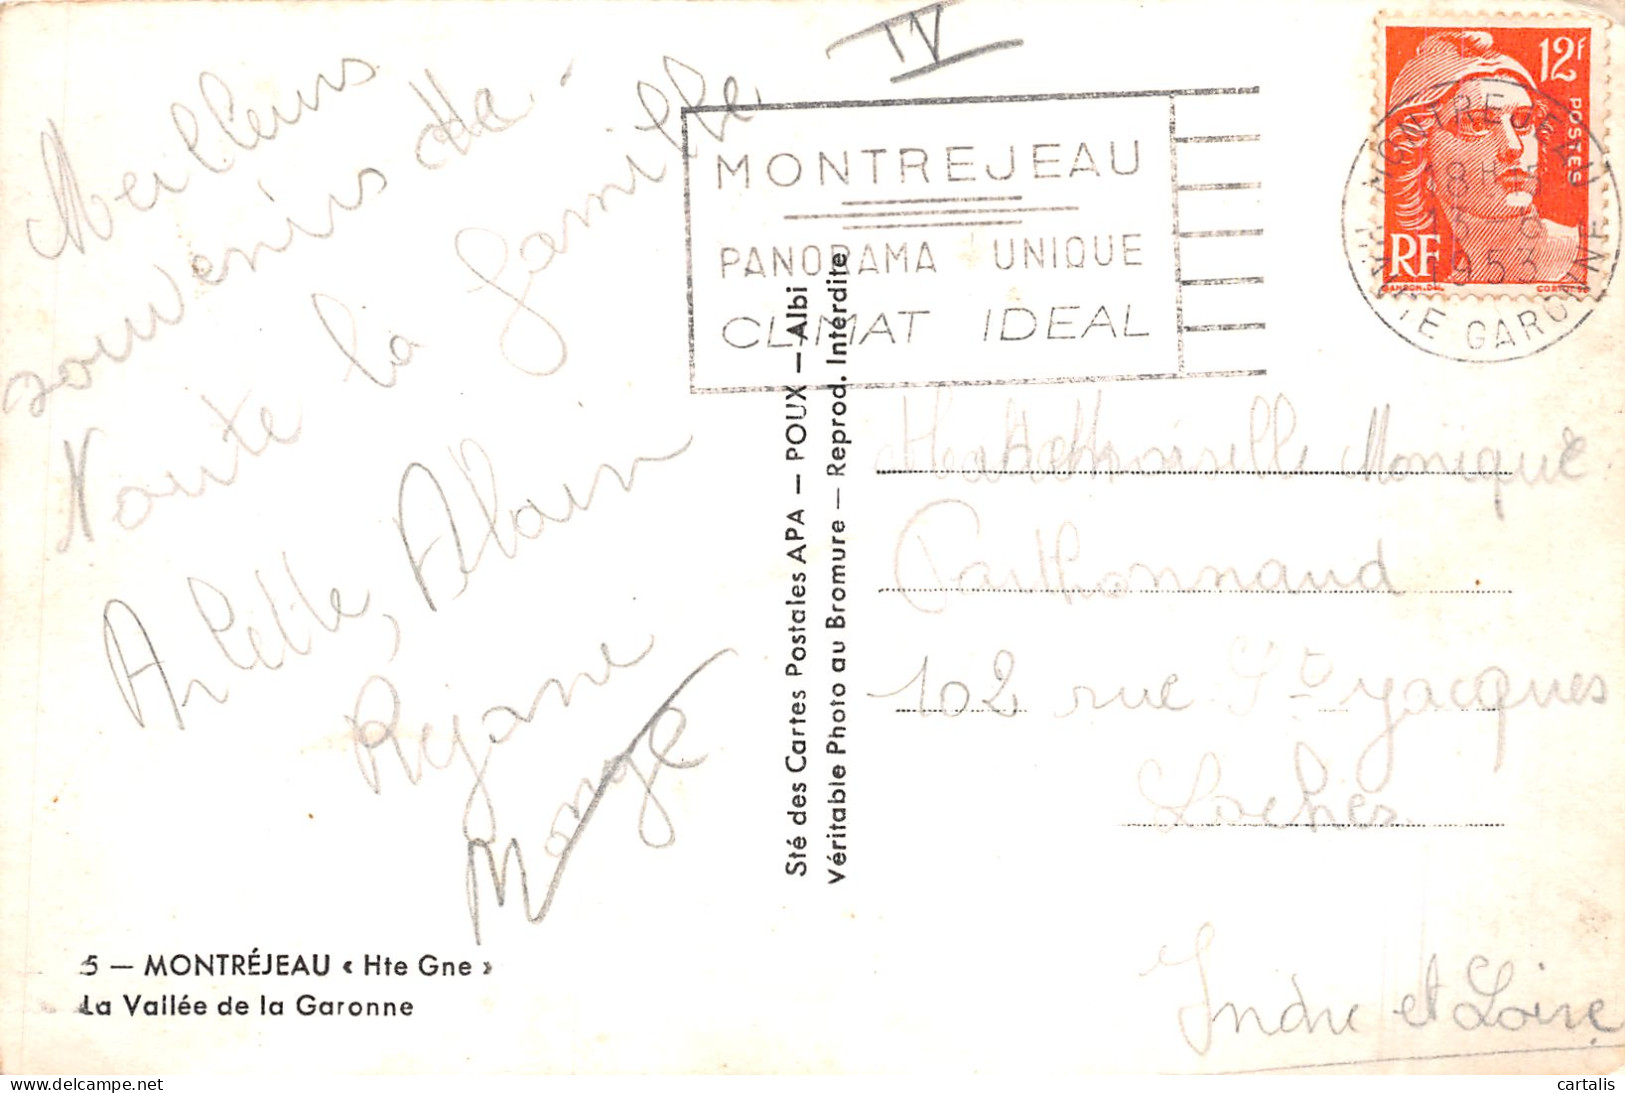 IV
Meilleurs
souvenirs de
toute la famille.
Arlette, Alain
Rejane
Monge
5 — MONTRÉJEAU « Hte Gne »
La Vallée de la Garonne
Sté des Cartes Postales APA — POUX — Albi
Véritable Photo au Bromure — Reprod. Interdite
MONTREJEAU
PANORAMA UNIQUE
CLIMAT IDEAL
12F
POSTES
RF
GANDON.DEL
MONTREJEAU
18 H
1953
HTE GARONNE
Mademoiselle Monique
Parthonnaud
102 rue St Jacques
Loches
Indre et Loire
cartalis